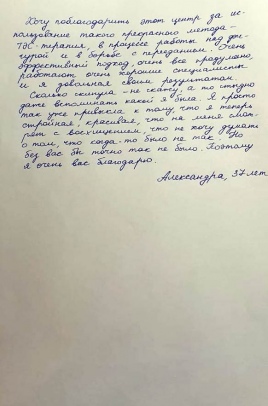 Хочу поблагодарить этот центр за ис-
пользование такого прекрасного метода -
ТЭС-терапия, в процессе работы над фи-
гурой и в борьбе с перееданием. Очень
эффективный подход, очень все продумано,
работают очень хорошие специалисты
и я довольная своим результатом.
Сколько скинула - не скажу, а то стыдно
даже вспоминать какой я была. Я просто
так уже привыкла к тому, что я теперь
стройная, красивая, что на меня смот-
рят с восхищением, что не хочу думать
о том, что когда-то было не так. Но
без вас бы точно так не было. Поэтому
я очень вас благодарю.
Александра, 37 лет.